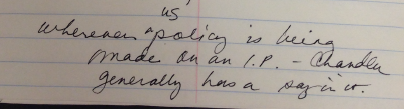 US
whenever ^ policy is being
made on an I.P. - Chandler
generally has a say in it.